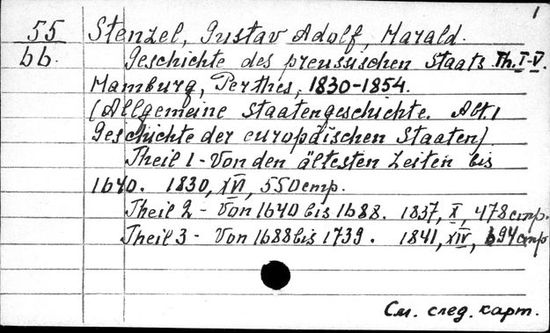 1
55 Stenzel, Gustav Adolf, Harald.
bb. Geschichte des preussischen Staats Th. I-V.
Hamburg, Perthes, 1830-1854.
(Allgemeine Staatengeschichte. Abt. 1
Geschichte der europäischen Staaten)
Theil 1 - Von den ältesten Zeiten bis
1640. 1830, XVI, 550 стр.
Theil 2 - Von 1640 bis 1688. 1837, X, 478 стр.
Theil 3 - Von 1688 bis 1739. 1841, XIV, 694 стр
См. след. карт.